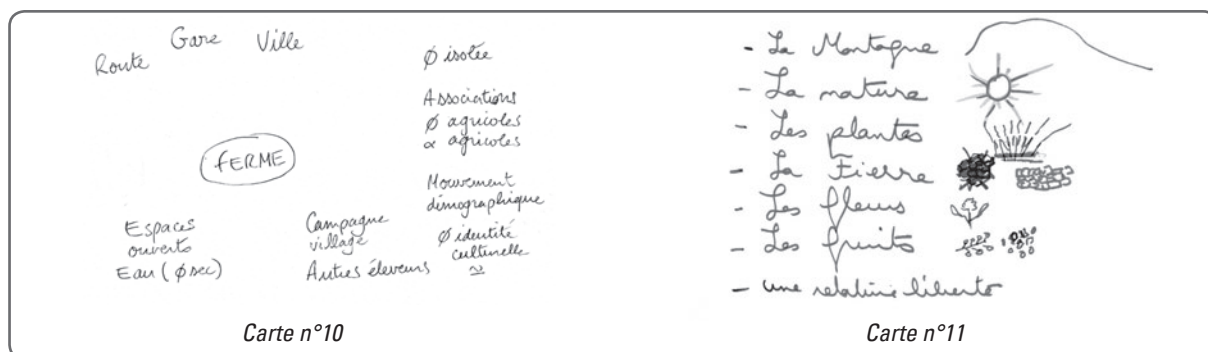 Route Gare Ville
Ø isolée
Associations
Ø agricoles
∝ agricoles
FERME
Mouvement
démographique
Espaces
ouverts
Eau (Ø sec)
Campagne
village
Autres éleveurs
Ø identité
culturelle
~
Carte n°10
- La Montagne
- La nature
- Les plantes
- La Fierre
- Les fleurs
- Les fruits
- une relative liberté
Carte n°11